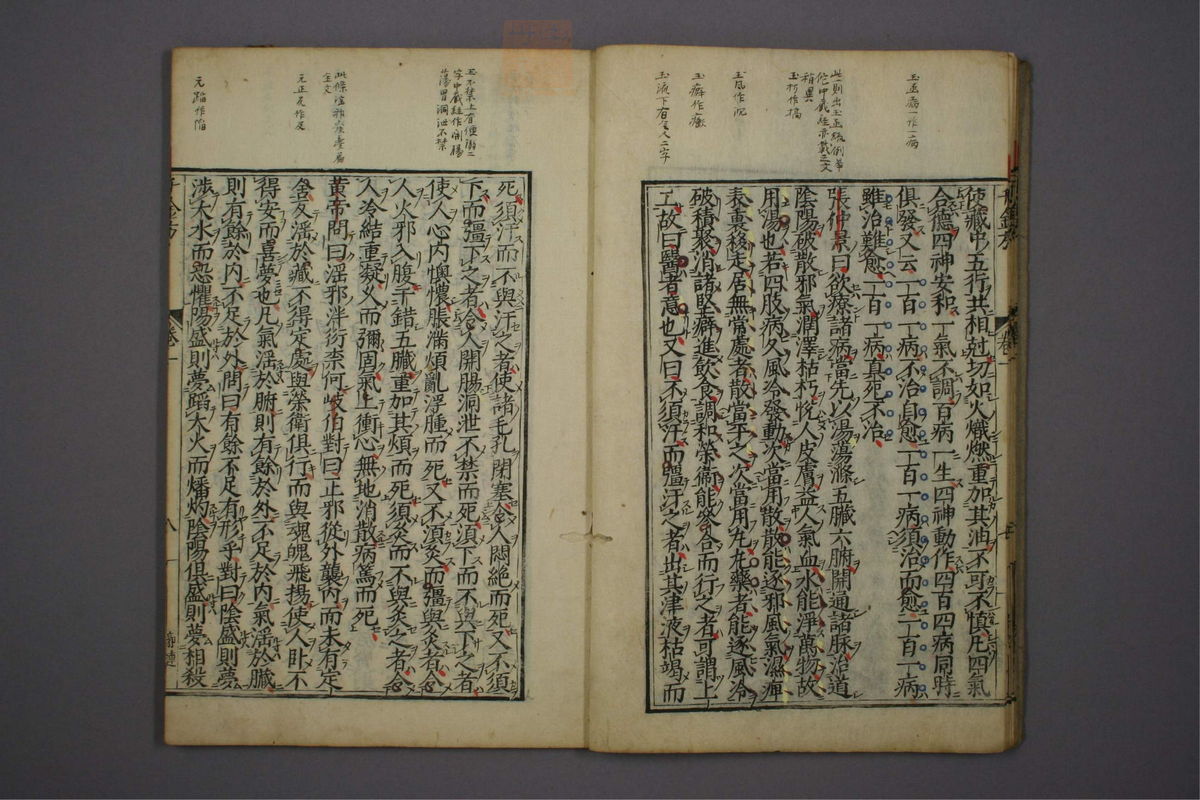 玉函病下作一病
此一則出玉函總例第
他中藏經亦載之文
稍異
玉朽作槁
玉風作沉
玉癖作癥
玉液下有令人二字
使藏中五行共相尅切如火熾燃重加其油不可不慎凡四氣
合德四神安和一氣不調百病一生四神動作四百四病同時
俱發又云一百一病不治自愈一百一病須治而愈一百一病
難治難愈一百一病真死不治
張仲景曰欲療諸病當先以湯蕩滌五臟六腑開通諸脉治道
陰陽破散邪氣潤澤枯朽悅人皮膚益人氣血水能淨萬物故
用湯也若四肢病久風冷發動次當用散散能逐邪風氣濕痺
表裏移走居無常處者散當平之次當用丸丸藥者能逐風冷
破積聚消諸堅癖進飲食調和榮衛能參合而行之者可謂上
工故曰醫者意也又曰不須汗而彊汗之者出其津液枯竭而
玉不禁上有便溺二
字中藏經作開腸
蕩胃洞泄不禁
此條淫邪
全文
元正反作及
元蹈作陷
死須汗而不與汗之者使諸毛孔閉塞令人悶絕而死又不須
下而彊下之者令人開腸洞泄不禁而死須下而不與下之者
使人心內懊憹脹滿煩亂浮腫而死又不須灸而彊與灸者令
人火邪入腹干錯五臟重加其煩而死須灸而不與灸之者令
人冷結重凝久而彌固氣上衝心無地消散病篤而死
黃帝問曰淫邪泮衍柰何岐伯對曰正邪從外襲內而未有定
舍反淫於藏不得定處與榮衛俱行而與魂魄飛揚使人臥不
得安而喜夢也凡氣淫於腑則有餘於外不足於內氣淫於臟
則有餘於內不足於外問曰有餘不足有形乎對曰陰盛則夢
涉大水而恐懼陽盛則夢蹈大火而燔灼陰陽俱盛則夢相殺
卷一
八